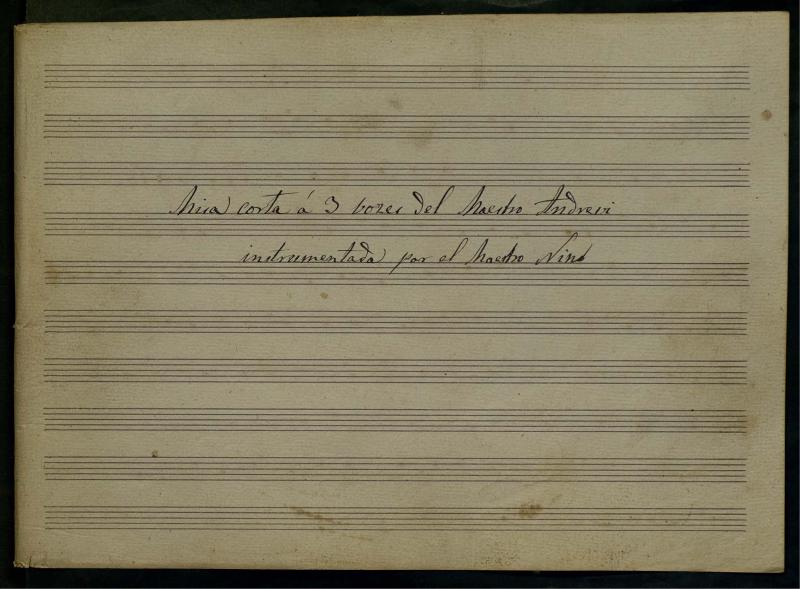 Misa corta á 3 vozes del Maestro Andrevi
instrumentada por el Maestro Nin